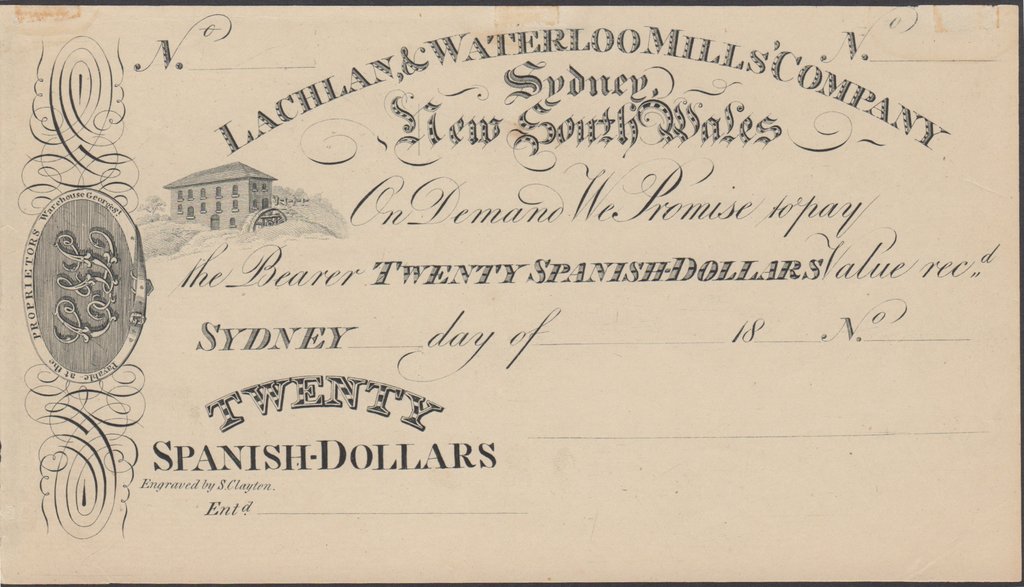 No. No.
LACHLAN, & WATERLOO MILLS' COMPANY
Sydney,
New South Wales
On Demand We Promise to pay
the Bearer TWENTY SPANISH-DOLLARS Value rec.d
SYDNEY day of 18 No.
TWENTY
SPANISH-DOLLARS
Engraved by S. Clayton.
Ent.d
PROPRIETORS Warehouse George St
Payable at the